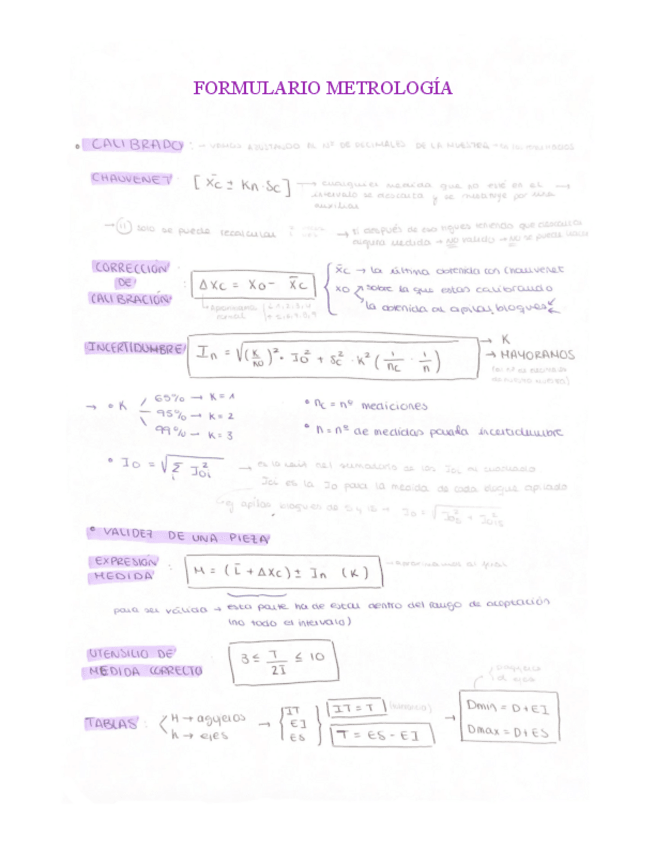 FORMULARIO METROLOGÍA
• CALIBRADO : → vamos ajustando el nº de decimales de la muestra
CHAUVENET [x̄c ± Kn·Sc] → cualquier medida que no esté en el → intervalo se descarta y se
→ (!!) solo se puede recalcular → si después de eso sigues teniendo que descartar
alguna medida → NO valido → NO se puede
CORRECCIÓN DE CALIBRACIÓN : ΔXc = Xo - X̄c
x̄c → la última obtenida con Chauvenet
xo → sobre la que estás calibrando
la obtenida al apilar bloques
INCERTIDUMBRE In = √((K/Ko)²· Io² + Sc² · K² (1/nc · 1/n)) → K
→ MAYORAMOS
→ • K 65% → K = 1
95% → K = 2
99% → K = 3
• nc = nº mediciones
• n = nº de medidas para la incertidumbre
• Io = √(Σi Ioi²) → es la raíz del sumatorio de las Ioi al cuadrado
Ioi es la Io para la medida de cada bloque apilado
apilas bloques de 5 y 15 → Io = √(Io5² + Io15²)
• VALIDEZ DE UNA PIEZA
EXPRESIÓN MEDIDA : M = (L̄ + ΔXc) ± In (K)
para ser válida → esta parte ha de estar dentro del rango de aceptación
(no todo el intervalo)
UTENSILIO DE MEDIDA CORRECTO : 3 ≤ T/2I ≤ 10
TABLAS : H → agujeros
h → ejes
→ IT
EI
ES
IT = T
T = ES - EI
→ Dmin = D + EI
Dmax = D + ES